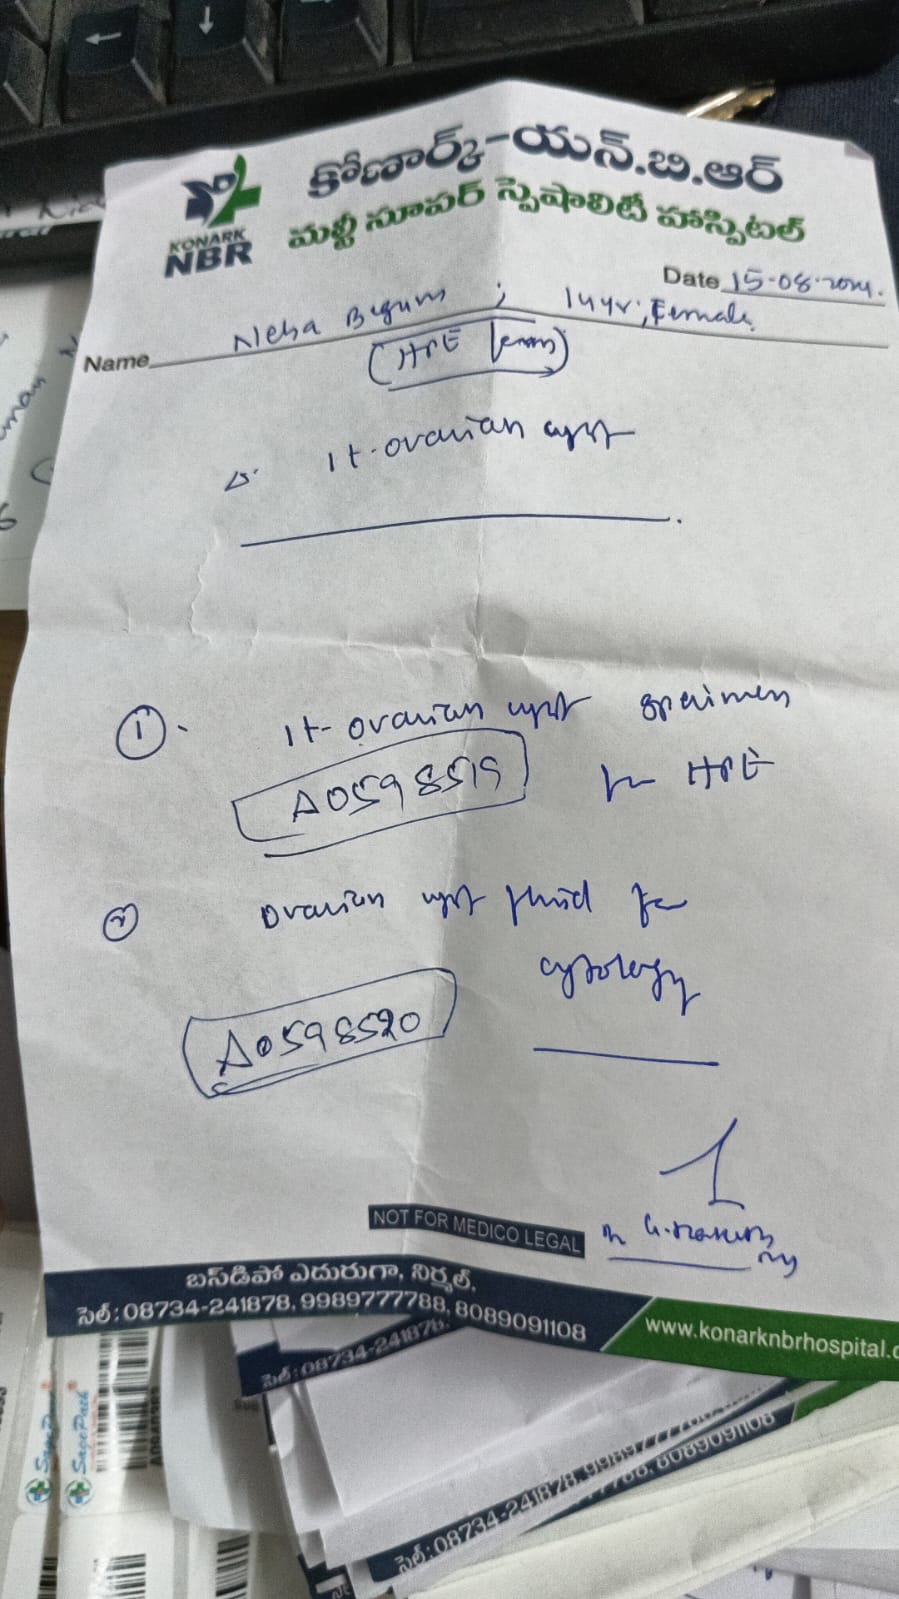 కోణార్క్-యన్.బి.ఆర్
మల్టీ సూపర్ స్పెషాలిటీ హాస్పిటల్
KONARK
NBR
Date 15-08-2024.
Name Neha Begum ; 14yr; Female
(HPE
Δ. lt-ovarian cyst
① . lt-ovarian cyst specimen
for HPE
A0598519
② ovarian cyst fluid for
cytology
A0598520
NOT FOR MEDICO LEGAL
బస్‌డిపో ఎదురుగా, నిర్మల్.
సెల్: 08734-241878, 9989777788, 8089091108
www.konarknbrhospital.c
సెల్: 08734-241878,
సెల్: 08734-241878, 99897777
8089091108
SagePath
SagePath